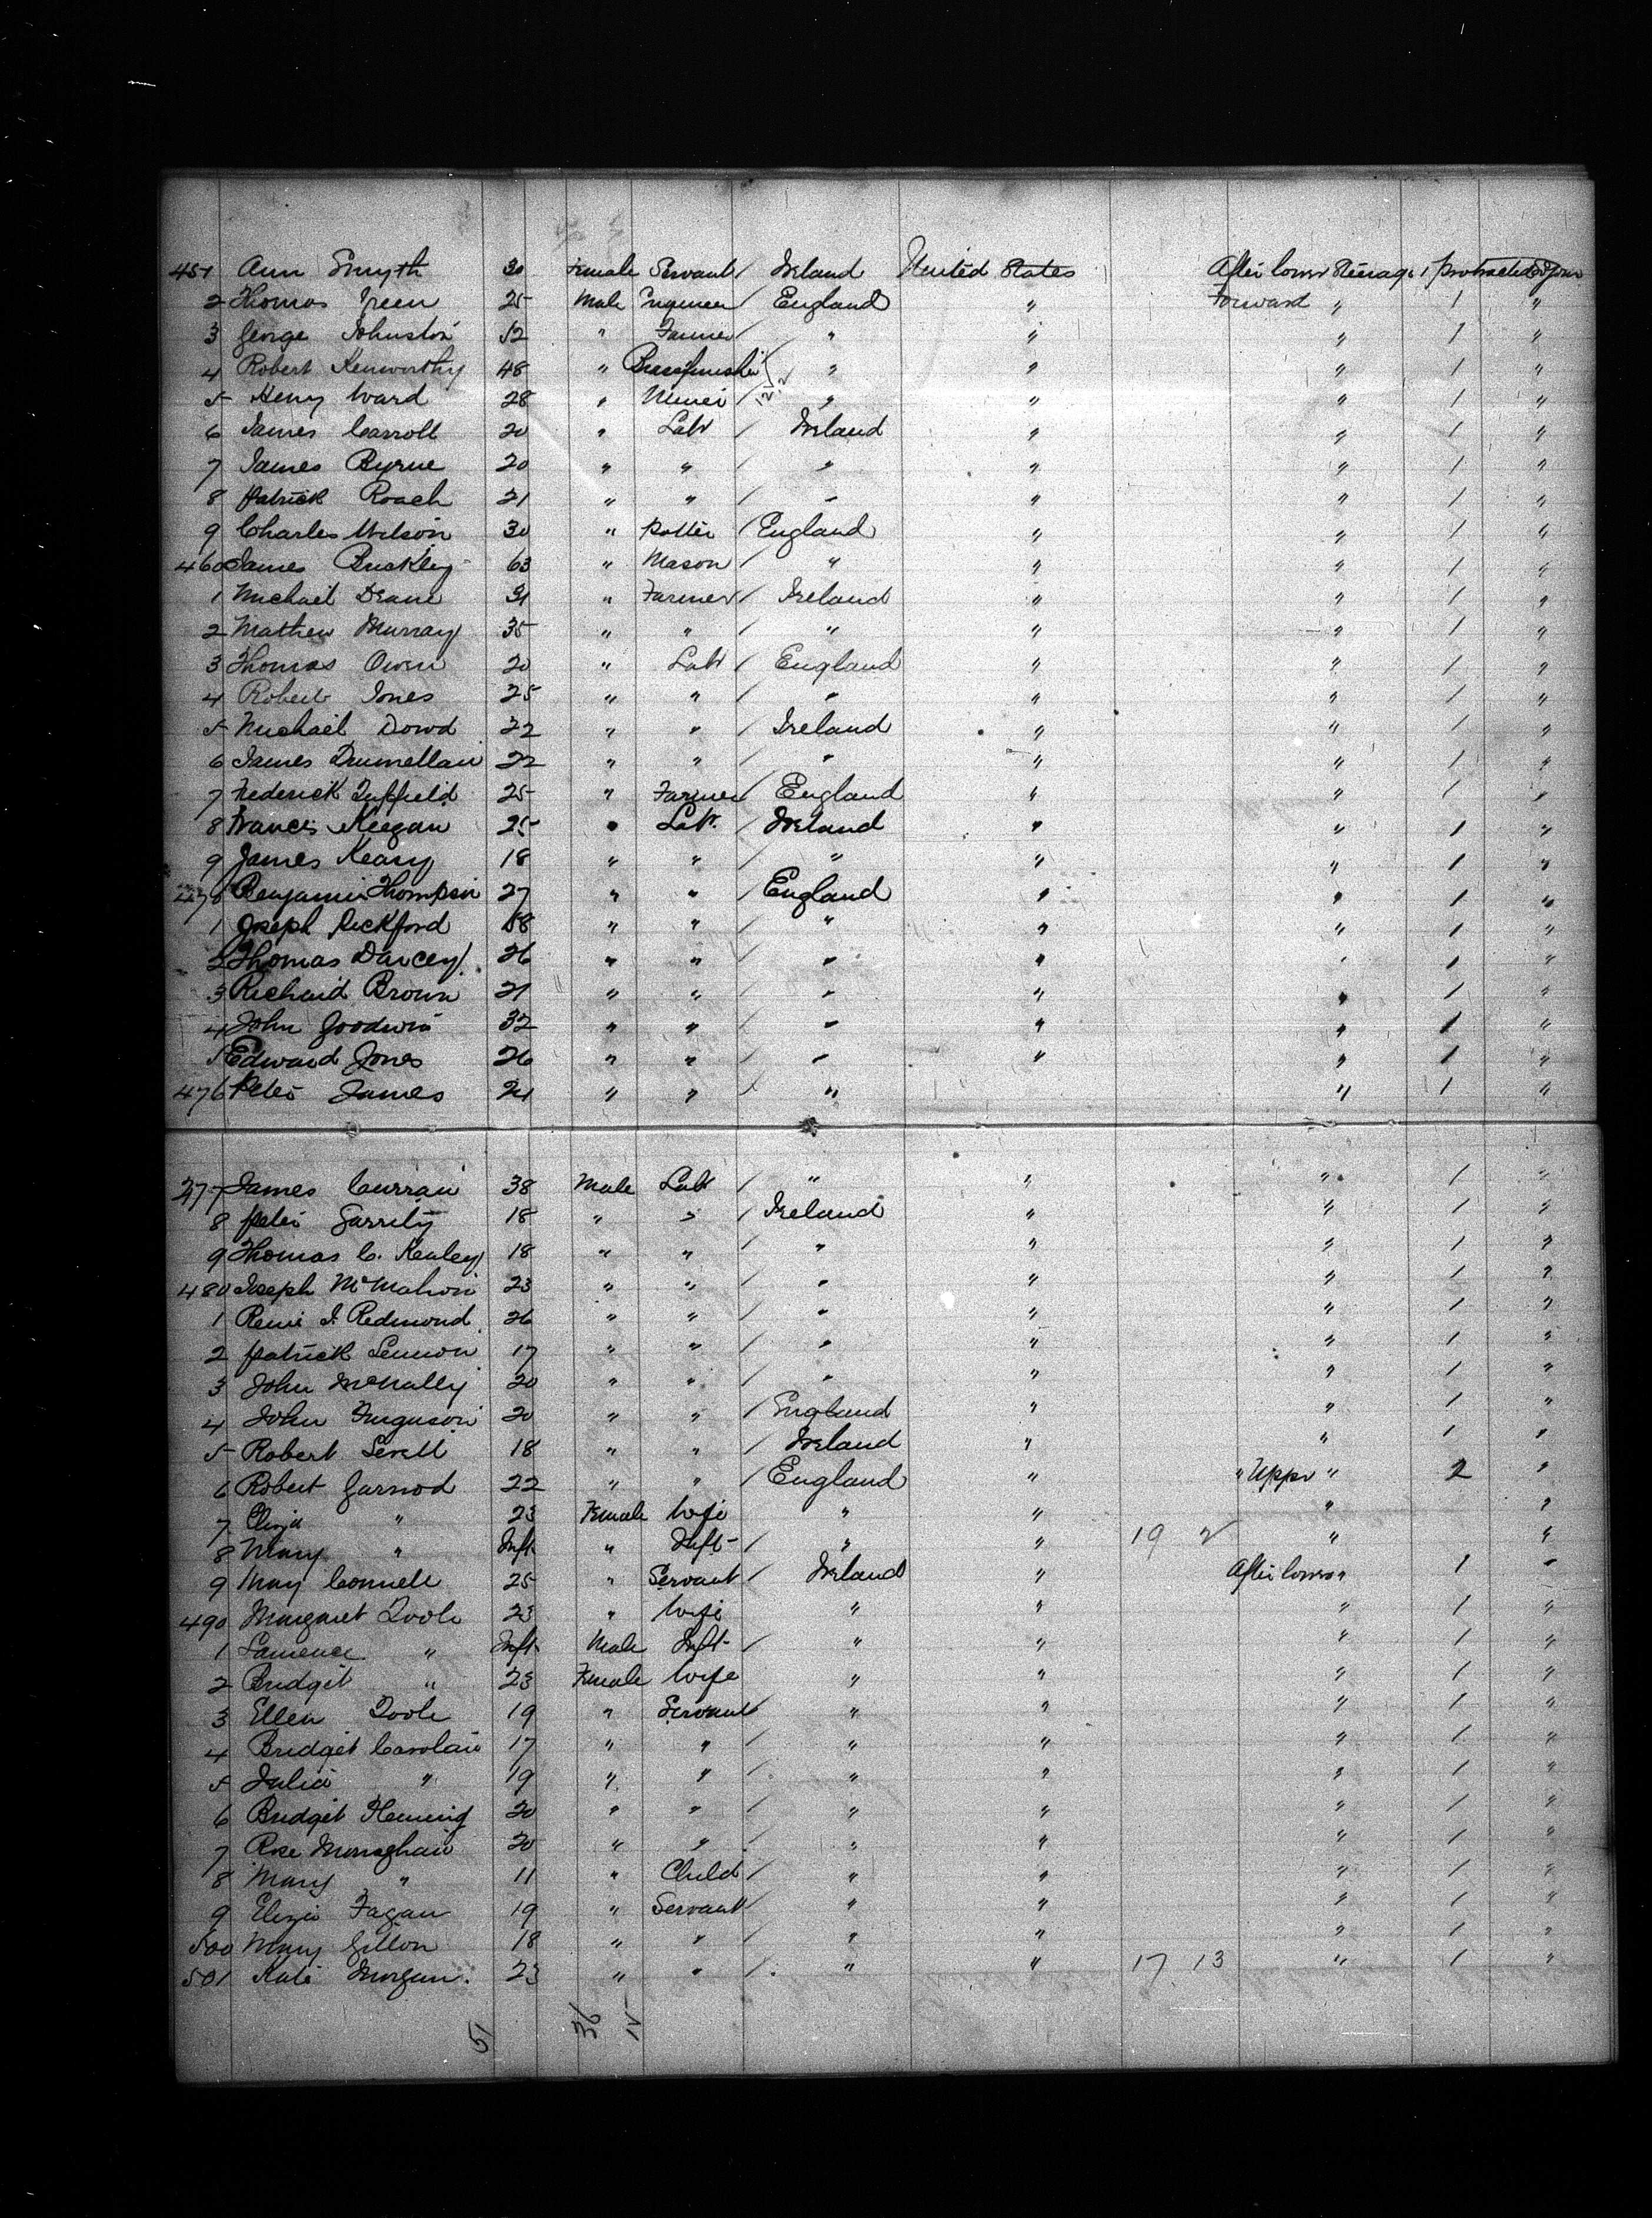 451 Ann Smyth 30 Female Servant / Ireland United States After lower Steerage 1 Protracted Sojour
2 Thomas Green 25 Male Engineer / England " Forward " 1 "
3 George Johnston 52 " Farmer / " " " 1 "
4 Robert Kenworthy 48 " Brassfinisher " " " 1 "
5 Henry Ward 28 " Miner / " " " 1 "
6 James Carroll 20 " Labr / Ireland " " 1 "
7 James Byrne 20 " " / " " " 1 "
8 Patrick Roach 21 " " / " " " 1 "
9 Charles Wilson 30 " Potter / England " " 1 "
460 James Buckley 63 " Mason / " " " 1 "
1 Michael Deane 31 " Farmer / Ireland " " 1 "
2 Mathew Murray 35 " " / " " " 1 "
3 Thomas Owen 20 " Labr / England " " 1 "
4 Robert Jones 25 " " / " " " 1 "
5 Michael Dowd 22 " " / Ireland " " 1 "
6 James 22 " " / " " " 1 "
7 Frederick Tuffield 25 " Farmer / England " " 1 "
8 Francis Keegan 25 " Labr. / Ireland " " 1 "
9 James Keary 18 " " / " " " 1 "
470 Benjamin Thompson 27 " " / England " " 1 "
1 Joseph Pickford 58 " " / " " " 1 "
2 Thomas Darcey 26 " " / " " " 1 "
3 Richard Brown 21 " " / " " " 1 "
4 John Goodwin 32 " " / " " " 1 "
5 Edward Jones 26 " " / " " " 1 "
476 Peter James 21 " " / " " 1 "
477 James Curran 38 Male Labr / " " " 1 "
8 Peter Garrity 18 " " / Ireland " " 1 "
9 Thomas C. Kenley 18 " " / " " " 1 "
480 Joseph McMahon 23 " " / " " " 1 "
1 Redmond 26 " " / " " " 1 "
2 Patrick Lennon 17 " " / " " " 1 "
3 John McNally 20 " " / " " " 1 "
4 John Ferguson 20 " " / England " " 1 "
5 Robert 18 " " / Ireland " " 1 "
6 Robert Garnod 22 " " / England " " Upper " 2 "
7 Eliza " 23 Female Wife " " " "
8 Mary " Inft " Inft / " " 19 2 " "
9 Mary Connell 25 " Servant / Ireland " After lower " 1 "
490 Margaret Toole 23 " Wife " " " 1 "
1 Lawrence " Inft Male Inft / " " " 1 "
2 Bridget " 23 Female Wife " " " 1 "
3 Ellen Toole 19 " Servant / " " " 1 "
4 Bridget Carolan 17 " " / " " " 1 "
5 Julia " 19 " " / " " " 1 "
6 Bridget Fleming 20 " " / " " " 1 "
7 Rose Monaghan 20 " " / " " " 1 "
8 Mary " 11 " Child / " " " 1 "
9 Eliza Fagan 19 " Servant / " " " 1 "
500 Mary Gillon 18 " " / " " " 1 "
501 Kate Morgan. 23 " " / " " 17 13 " 1 "
51 36 15